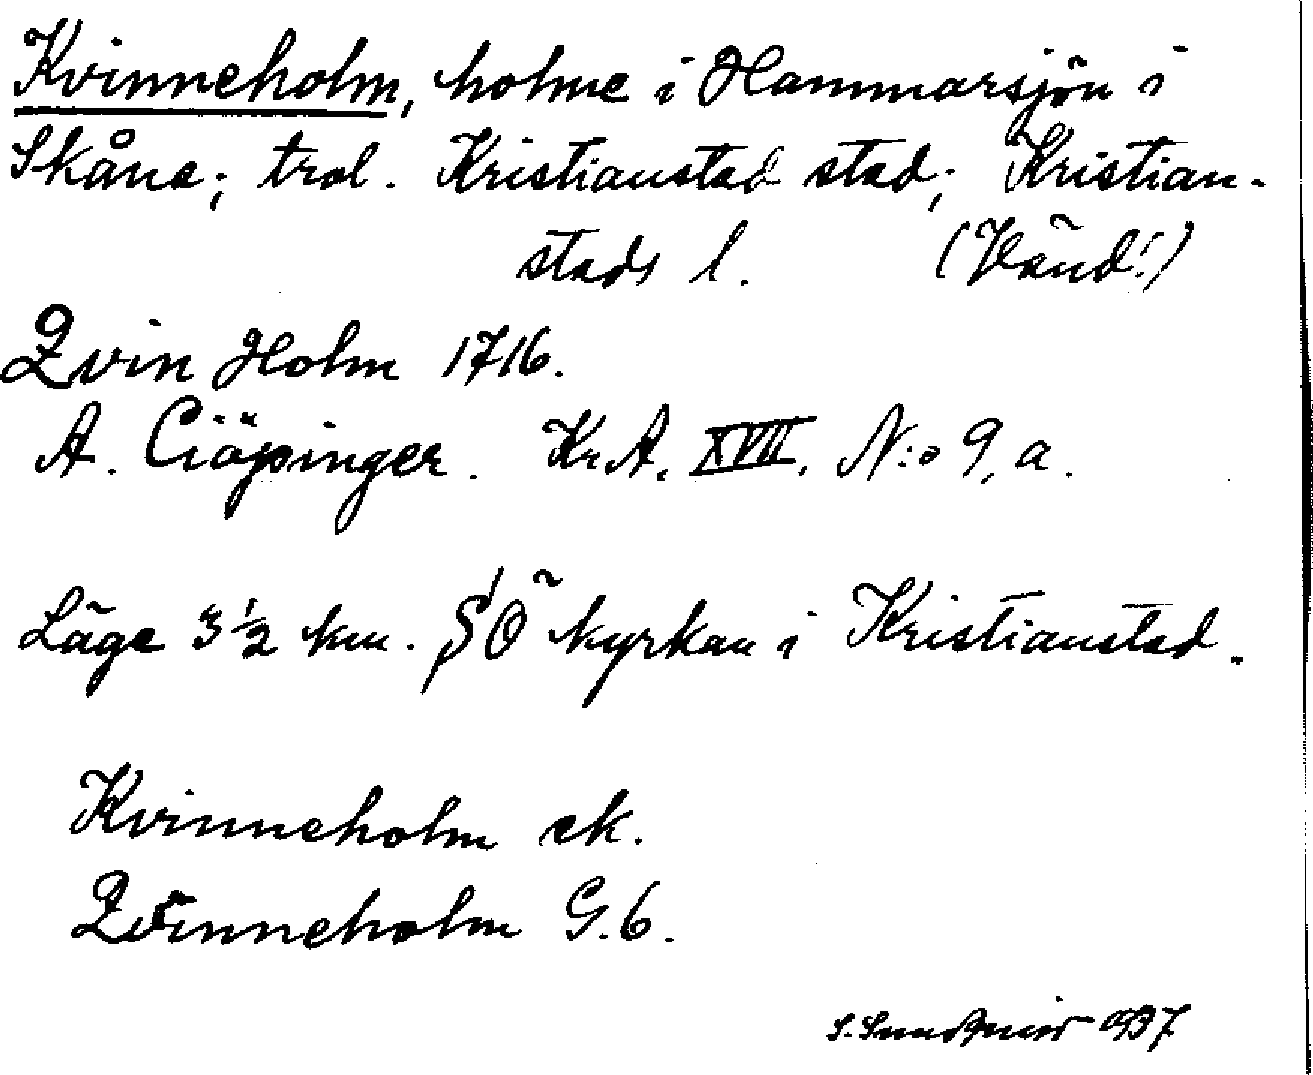 Kvinneholm, holme i Hammarsjön i
Skåne; trol. Kristianstad stad; Kristian-
stads l. (Vänd!)
Qvin Holm 1716.
A. Ciöpinger. Kr.A. XVII. N:o 9, a.
Läge 3 1/2 km. SO kyrkan i Kristianstad.
Kvinneholm ek.
Qvinneholm G.6.
S. 1937